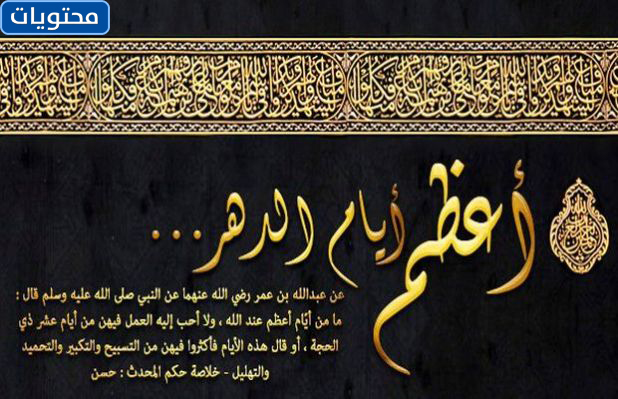 محتويات
أعظم أيام الدهر...
عن عبدالله بن عمر رضي الله عنهما عن النبي صلى الله عليه وسلم قال :
ما من أيّام أعظم عند الله ، ولا أحب إليه العمل فيهن من أيام عشر ذي
الحجة ، أو قال هذه الأيام فأكثروا فيهن من التسبيح والتكبير والتحميد
والتهليل - خلاصة حكم المحدث : حسن